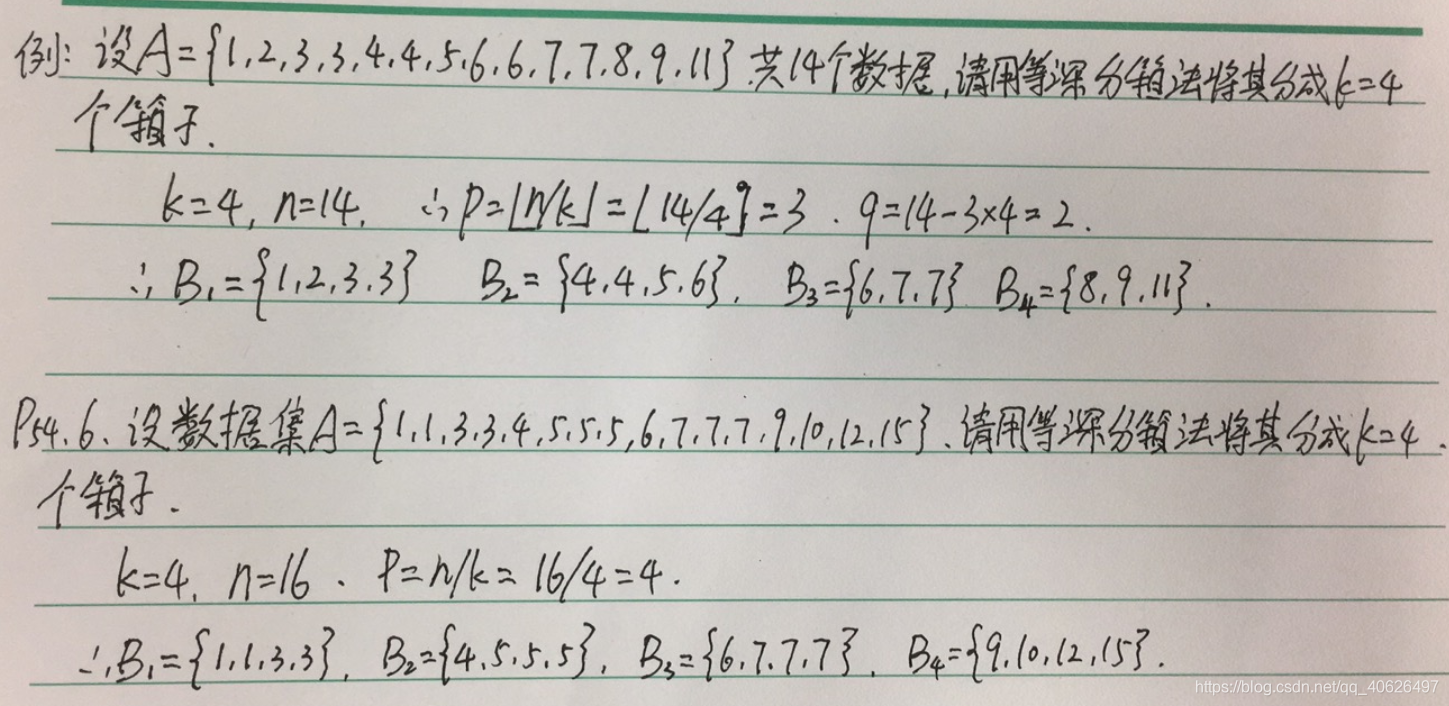 例: 设A={1,2,3,3,4,4,5,6,6,7,7,8,9,11}共14个数据,请用等深分箱法将其分成k=4
个箱子.
k=4, n=14, ∴ p=⌊n/k⌋=⌊14/4⌋=3. q=14-3×4=2.
∴ B₁={1,2,3,3} B₂={4,4,5,6}, B₃={6,7,7} B₄={8,9,11}.
P54.6、设数据集A={1,1,3,3,4,5,5,5,6,7,7,7,9,10,12,15}.请用等深分箱法将其分成k=4.
个箱子.
k=4, n=16. P=n/k=16/4=4.
∴B₁={1,1,3,3}, B₂={4,5,5,5}, B₃={6,7,7,7}, B₄={9,10,12,15}.
https://blog.csdn.net/qq_40626497